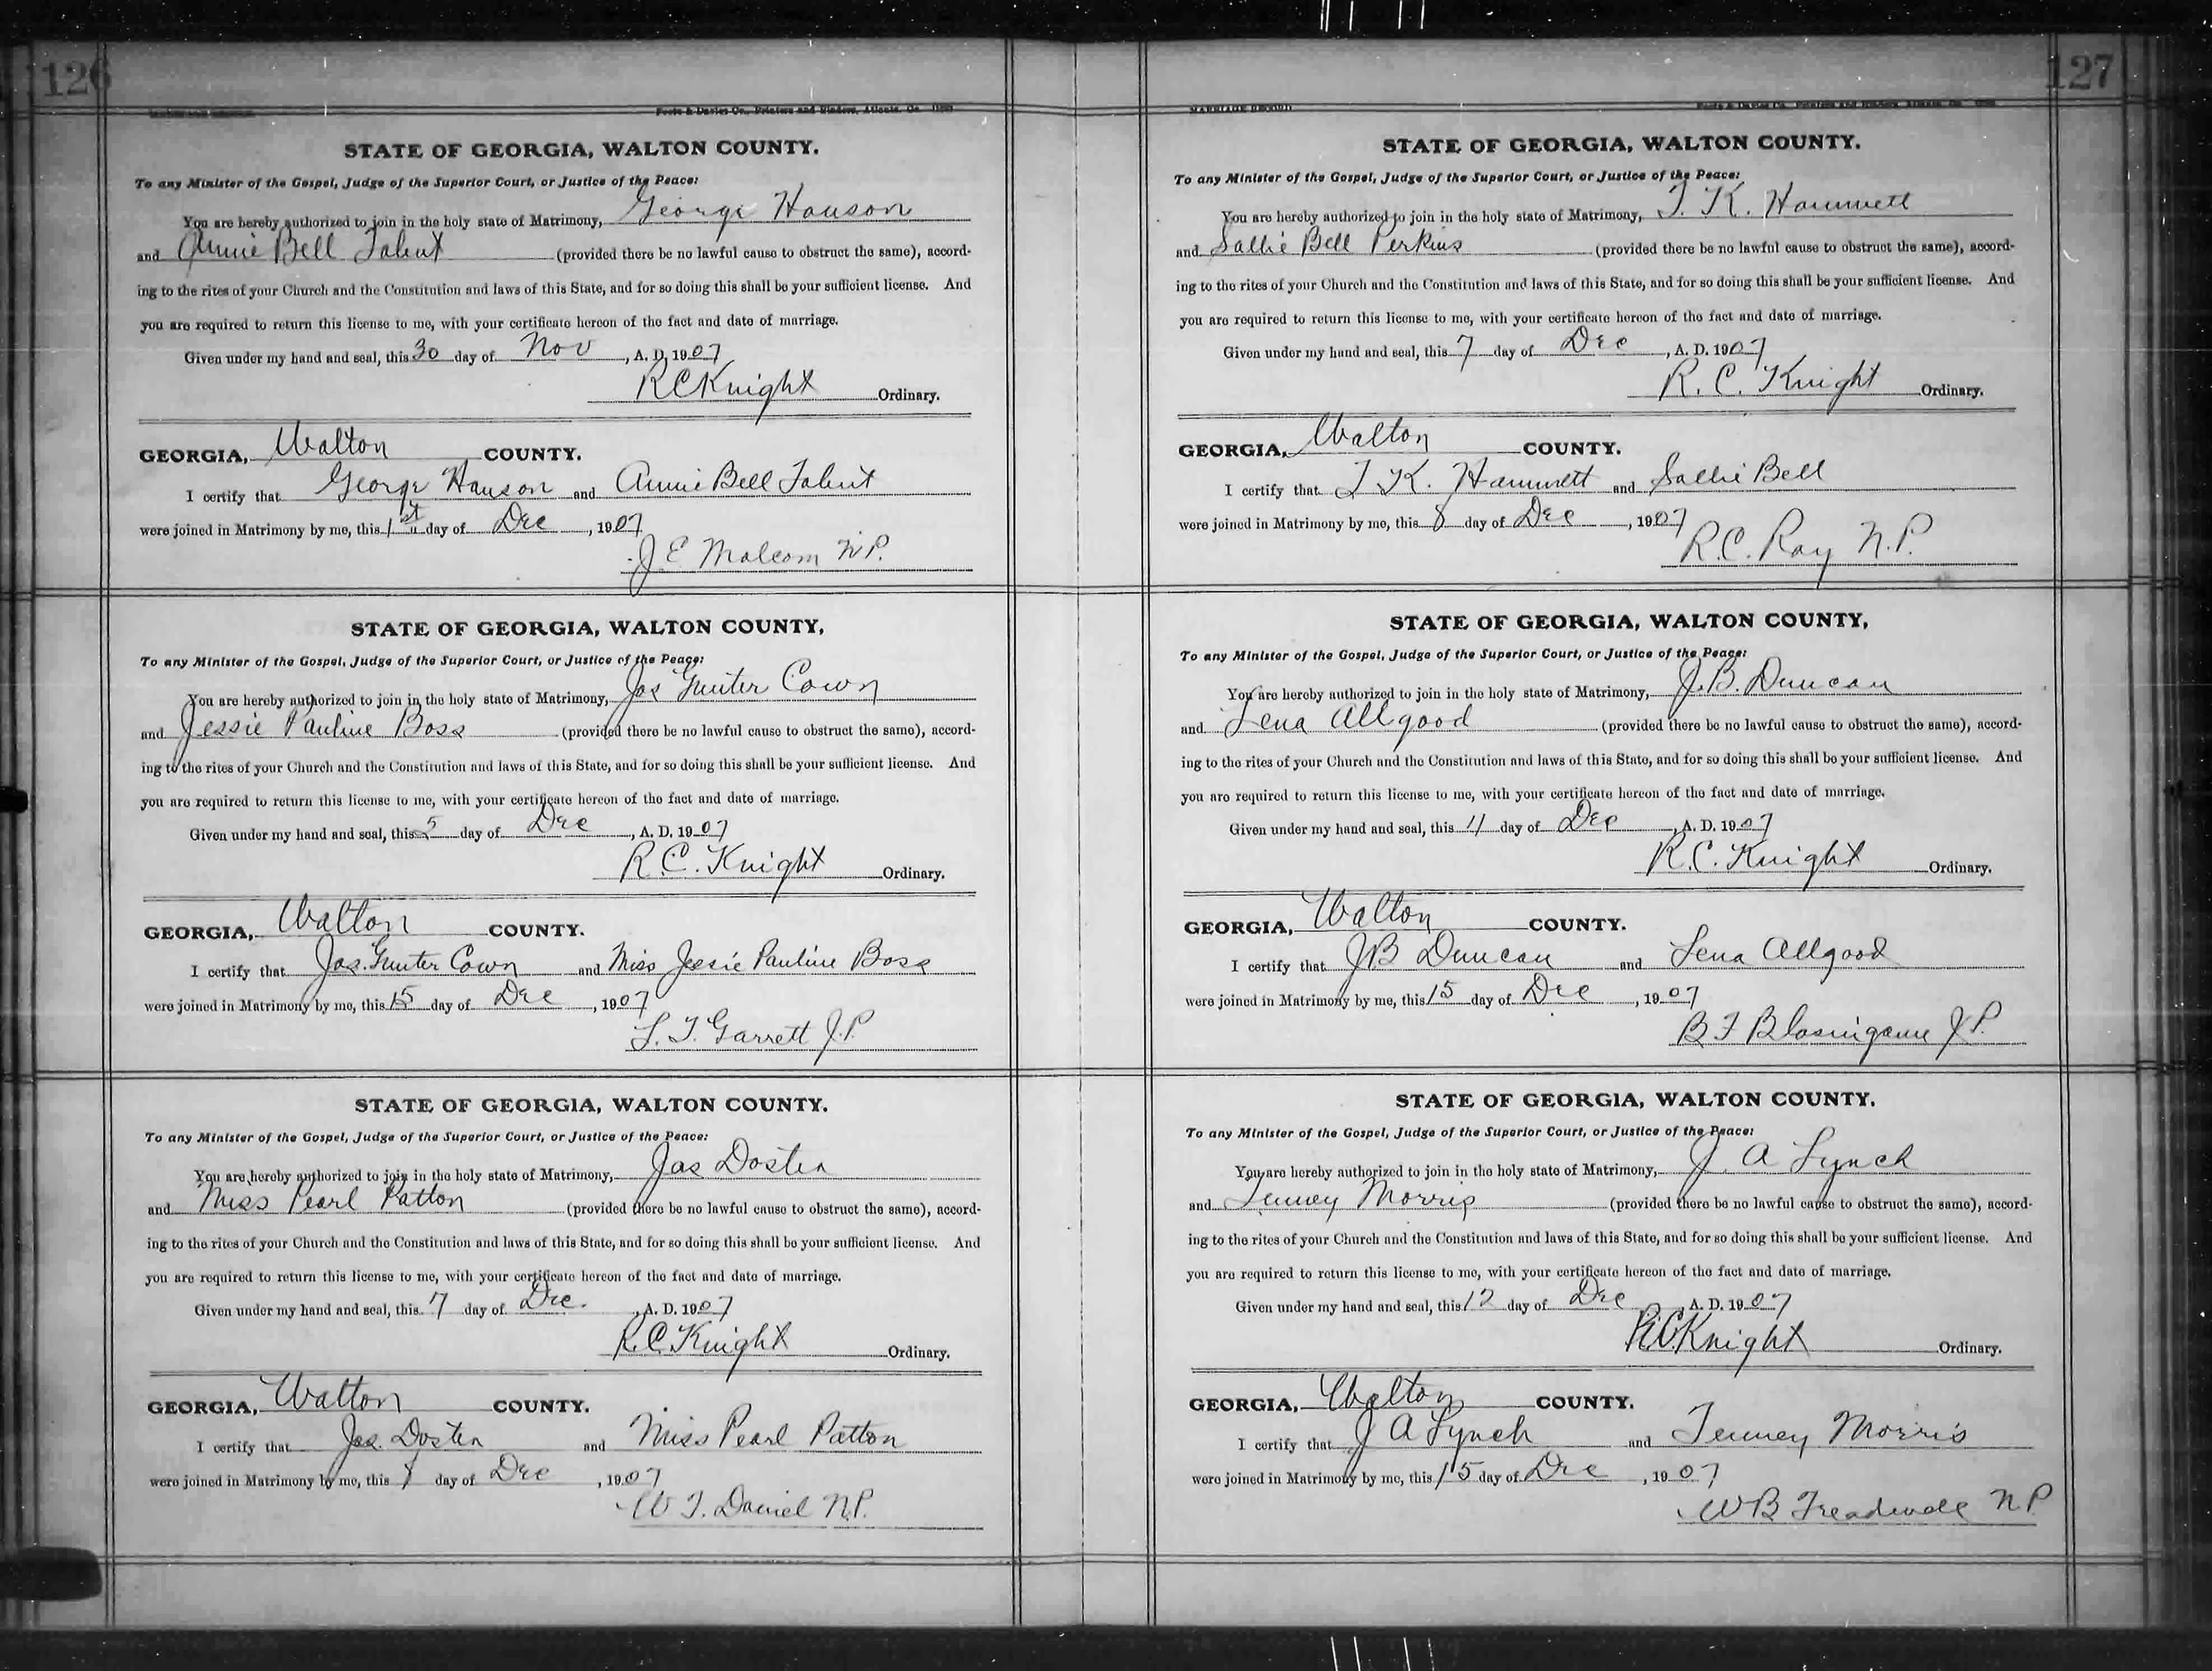 126
Foote & Davies Co., Printers and Binders, Atlanta, Ga.
STATE OF GEORGIA, WALTON COUNTY.
To any Minister of the Gospel, Judge of the Superior Court, or Justice of the Peace:
You are hereby authorized to join in the holy state of Matrimony, George Hanson
and Annie Bell Talent (provided there be no lawful cause to obstruct the same), accord-
ing to the rites of your Church and the Constitution and laws of this State, and for so doing this shall be your sufficient license. And
you are required to return this license to me, with your certificate hereon of the fact and date of marriage.
Given under my hand and seal, this 30 day of Nov, A. D. 1907
R C Knight Ordinary.
GEORGIA, Walton COUNTY.
I certify that George Hanson and Annie Bell Talent
were joined in Matrimony by me, this 1st day of Dec, 1907
J E Malcom N.P.
STATE OF GEORGIA, WALTON COUNTY,
To any Minister of the Gospel, Judge of the Superior Court, or Justice of the Peace:
You are hereby authorized to join in the holy state of Matrimony, Jas Gunter Cown
and Jessie Pauline Boss (provided there be no lawful cause to obstruct the same), accord-
ing to the rites of your Church and the Constitution and laws of this State, and for so doing this shall be your sufficient license. And
you are required to return this license to me, with your certificate hereon of the fact and date of marriage.
Given under my hand and seal, this 5 day of Dec, A. D. 1907
R. C. Knight Ordinary.
GEORGIA, Walton COUNTY.
I certify that Jas. Gunter Cown and Miss Jessie Pauline Boss
were joined in Matrimony by me, this 15 day of Dec, 1907
L. T. Garrett J.P.
STATE OF GEORGIA, WALTON COUNTY.
To any Minister of the Gospel, Judge of the Superior Court, or Justice of the Peace:
You are hereby authorized to join in the holy state of Matrimony, Jas Doster
and Miss Pearl Patton (provided there be no lawful cause to obstruct the same), accord-
ing to the rites of your Church and the Constitution and laws of this State, and for so doing this shall be your sufficient license. And
you are required to return this license to me, with your certificate hereon of the fact and date of marriage.
Given under my hand and seal, this 7 day of Dec., A. D. 1907
R. C. Knight Ordinary.
GEORGIA, Walton COUNTY.
I certify that Jas. Doster and Miss Pearl Patton
were joined in Matrimony by me, this 8 day of Dec, 1907
W T. Daniel N.P.
127
MARRIAGE RECORD
STATE OF GEORGIA, WALTON COUNTY.
To any Minister of the Gospel, Judge of the Superior Court, or Justice of the Peace:
You are hereby authorized to join in the holy state of Matrimony, T. K. Hammett
and Sallie Bell Perkins (provided there be no lawful cause to obstruct the same), accord-
ing to the rites of your Church and the Constitution and laws of this State, and for so doing this shall be your sufficient license. And
you are required to return this license to me, with your certificate hereon of the fact and date of marriage.
Given under my hand and seal, this 7 day of Dec, A. D. 1907
R. C. Knight Ordinary.
GEORGIA, Walton COUNTY.
I certify that T K. Hammett and Sallie Bell
were joined in Matrimony by me, this 8 day of Dec, 1907
R. C. Ray N.P.
STATE OF GEORGIA, WALTON COUNTY,
To any Minister of the Gospel, Judge of the Superior Court, or Justice of the Peace:
You are hereby authorized to join in the holy state of Matrimony, J. B. Duncan
and Lena Allgood (provided there be no lawful cause to obstruct the same), accord-
ing to the rites of your Church and the Constitution and laws of this State, and for so doing this shall be your sufficient license. And
you are required to return this license to me, with your certificate hereon of the fact and date of marriage.
Given under my hand and seal, this 11 day of Dec, A. D. 1907
R. C. Knight Ordinary.
GEORGIA, Walton COUNTY.
I certify that J B Duncan and Lena Allgood
were joined in Matrimony by me, this 15 day of Dec, 1907
B F Blasingame J.P.
STATE OF GEORGIA, WALTON COUNTY.
To any Minister of the Gospel, Judge of the Superior Court, or Justice of the Peace:
You are hereby authorized to join in the holy state of Matrimony, J. A Lynch
and Tenney Morris (provided there be no lawful cause to obstruct the same), accord-
ing to the rites of your Church and the Constitution and laws of this State, and for so doing this shall be your sufficient license. And
you are required to return this license to me, with your certificate hereon of the fact and date of marriage.
Given under my hand and seal, this 12 day of Dec, A. D. 1907
R C Knight Ordinary.
GEORGIA, Walton COUNTY.
I certify that J A Lynch and Tenney Morris
were joined in Matrimony by me, this 15 day of Dec, 1907
W B Treadwell N P